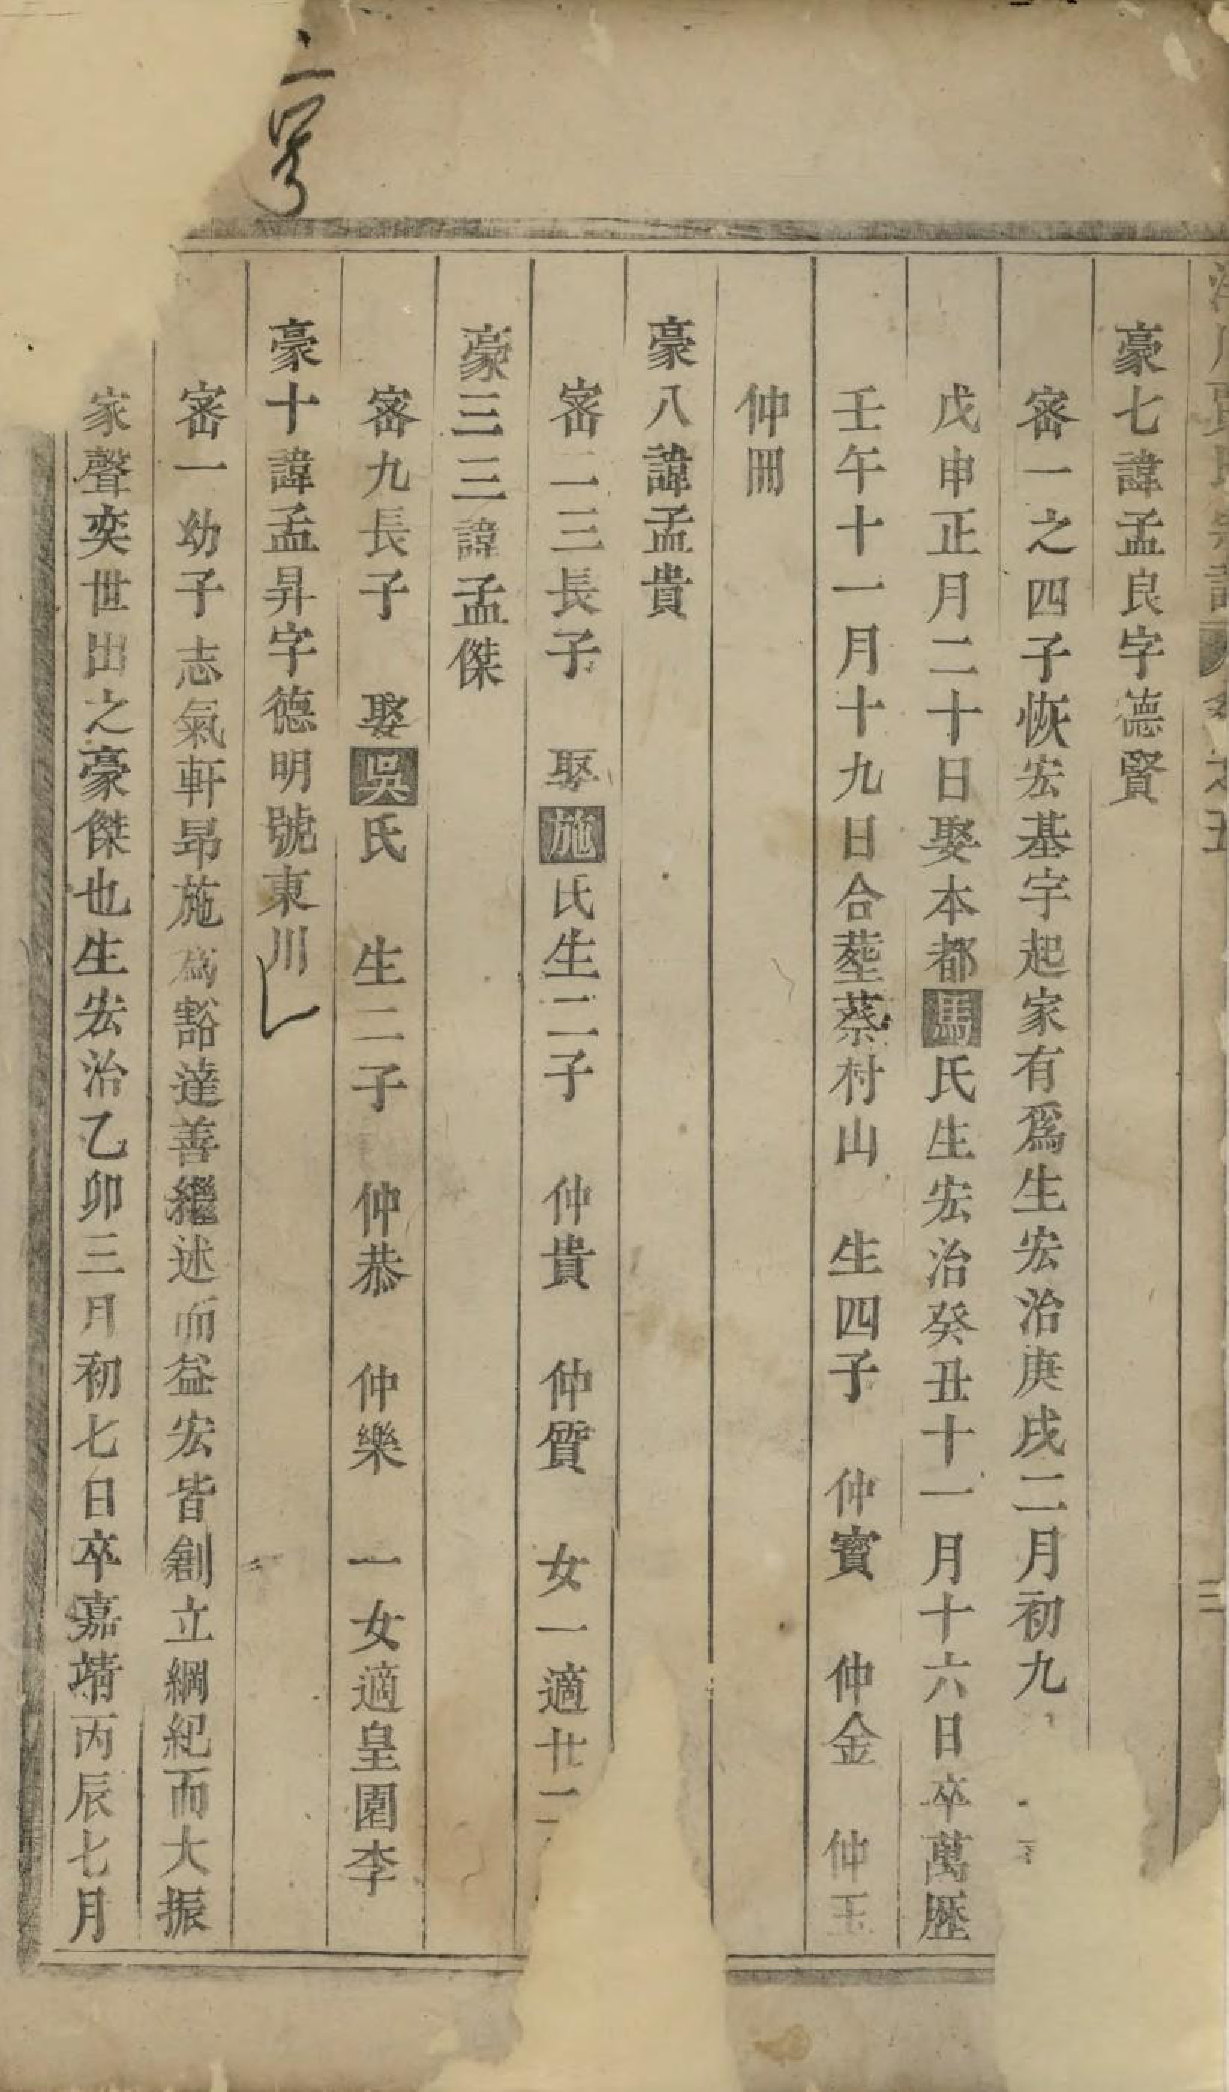 豪七諱孟良字德賢
寄一之四子恢宏基宇起家有爲生宏治庚戌二月初九
戊申正月二十日娶本都馬氏生宏治癸丑十一月十六日卒萬歷
壬午十一月十九日合塟蔡村山 生四子 仲寳 仲金 仲玉
仲冊
豪八諱孟貴
寄二三長子 娶施氏生二子 仲貴 仲質 女一適廿二
豪三三諱孟傑
寄九長子 娶吳氏 生二子 仲恭 仲樂 一女適皇園李
豪十諱孟昇字德明號東川
寄一幼子志氣軒昻施爲豁達善繼述而益宏皆創立綱紀而大振
家聲奕世出之豪傑也生宏治乙卯三月初七日卒嘉靖丙辰七月